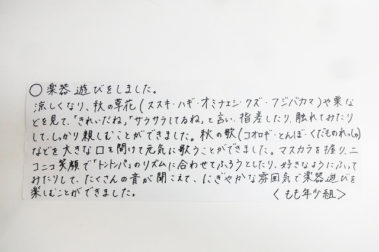 ○楽器遊びをしました。
涼しくなり、秋の草花(ススキ・ハギ・オミナエシ・クズ・フジバカマ)や栗な
どを見て、「きれいだね。」「ザラザラしてるね。」と言い、指差したり、触れてみたり
して、しっかり親しむことができました。秋の歌(コオロギ・とんぼ・くだものれっしゃ)
などを大きな口を開けて元気に歌うことができました。マスカラを振り、ニ
コニコ笑顔で「トントンパ」のリズムに合わせてふろうとしたり、好きなようにふって
みたりして、たくさんの音が聞こえて、にぎやかな雰囲気で楽器遊びを
楽しむことができました。〈もも年少組〉